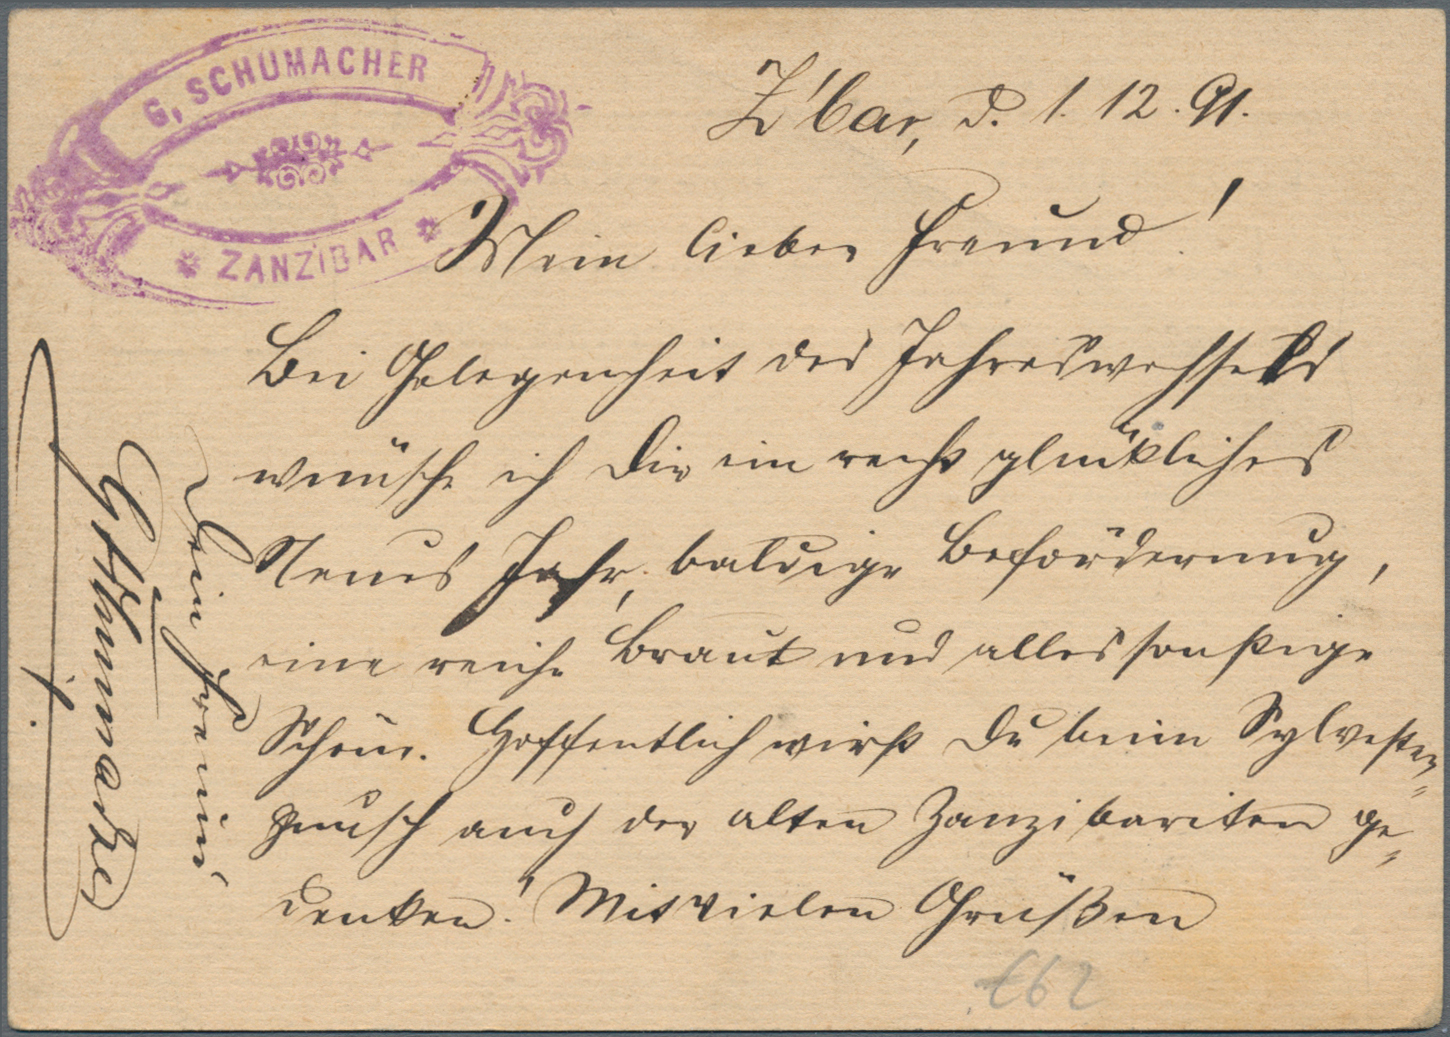 G. SCHUMACHER
ZANZIBAR
Z'bar, d. 1. 12. 91.
Mein lieber Freund!
Bei Gelegenheit des Jahreswechsels
wünsche ich Dir ein recht glückliches
Neues Jahr, baldige Beförderung,
eine reiche Braut und alles sonstige
Schöne. Hoffentlich wirst Du beim Sylvester-
punsch auch der alten Zanzibariten ge-
denken! Mit vielen Grüßen
Dein Freund
GSchumacher
£62